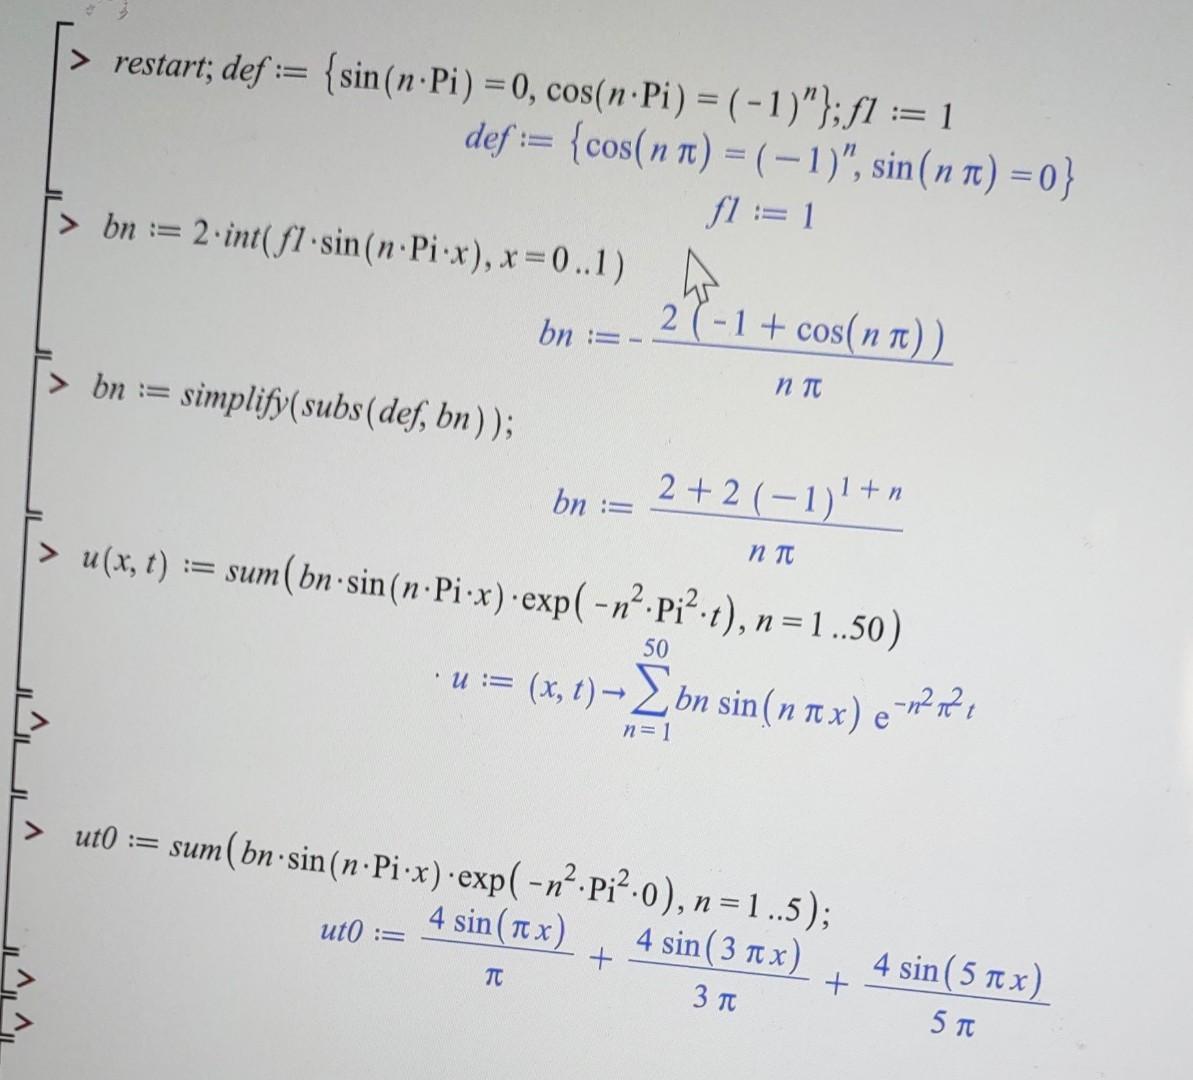 > restart; def := {sin(n·Pi) = 0, cos(n·Pi) = (-1)^n}; f1 := 1
def := {cos(n π) = (-1)^n, sin(n π) = 0}
f1 := 1
> bn := 2·int(f1·sin(n·Pi·x), x = 0..1)
bn := - 2 (-1 + cos(n π)) / n π
> bn := simplify(subs(def, bn));
bn := 2 + 2 (-1)^(1 + n) / n π
> u(x, t) := sum(bn·sin(n·Pi·x)·exp(-n^2·Pi^2·t), n = 1..50)
u := (x, t) → ∑_{n=1}^{50} bn sin(n π x) e^(-n^2 π^2 t)
>
> ut0 := sum(bn·sin(n·Pi·x)·exp(-n^2·Pi^2·0), n = 1..5);
ut0 := 4 sin(π x) / π + 4 sin(3 π x) / 3 π + 4 sin(5 π x) / 5 π
>
>